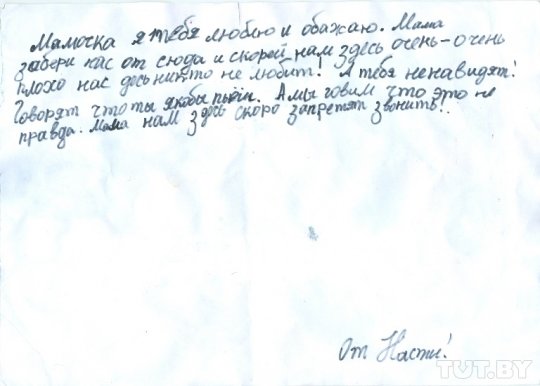 Мамочка я тебя люблю и обажаю. Мама
забери нас от сюда и скорей нам здесь очень-очень
плохо нас десь никто не любит! А тебя ненавидят!
Говорят что ты якобы пьёш. А мы говим что это не
правда. Мама нам здесь скоро запретят звонить!.
От Насти!
TUT.BY